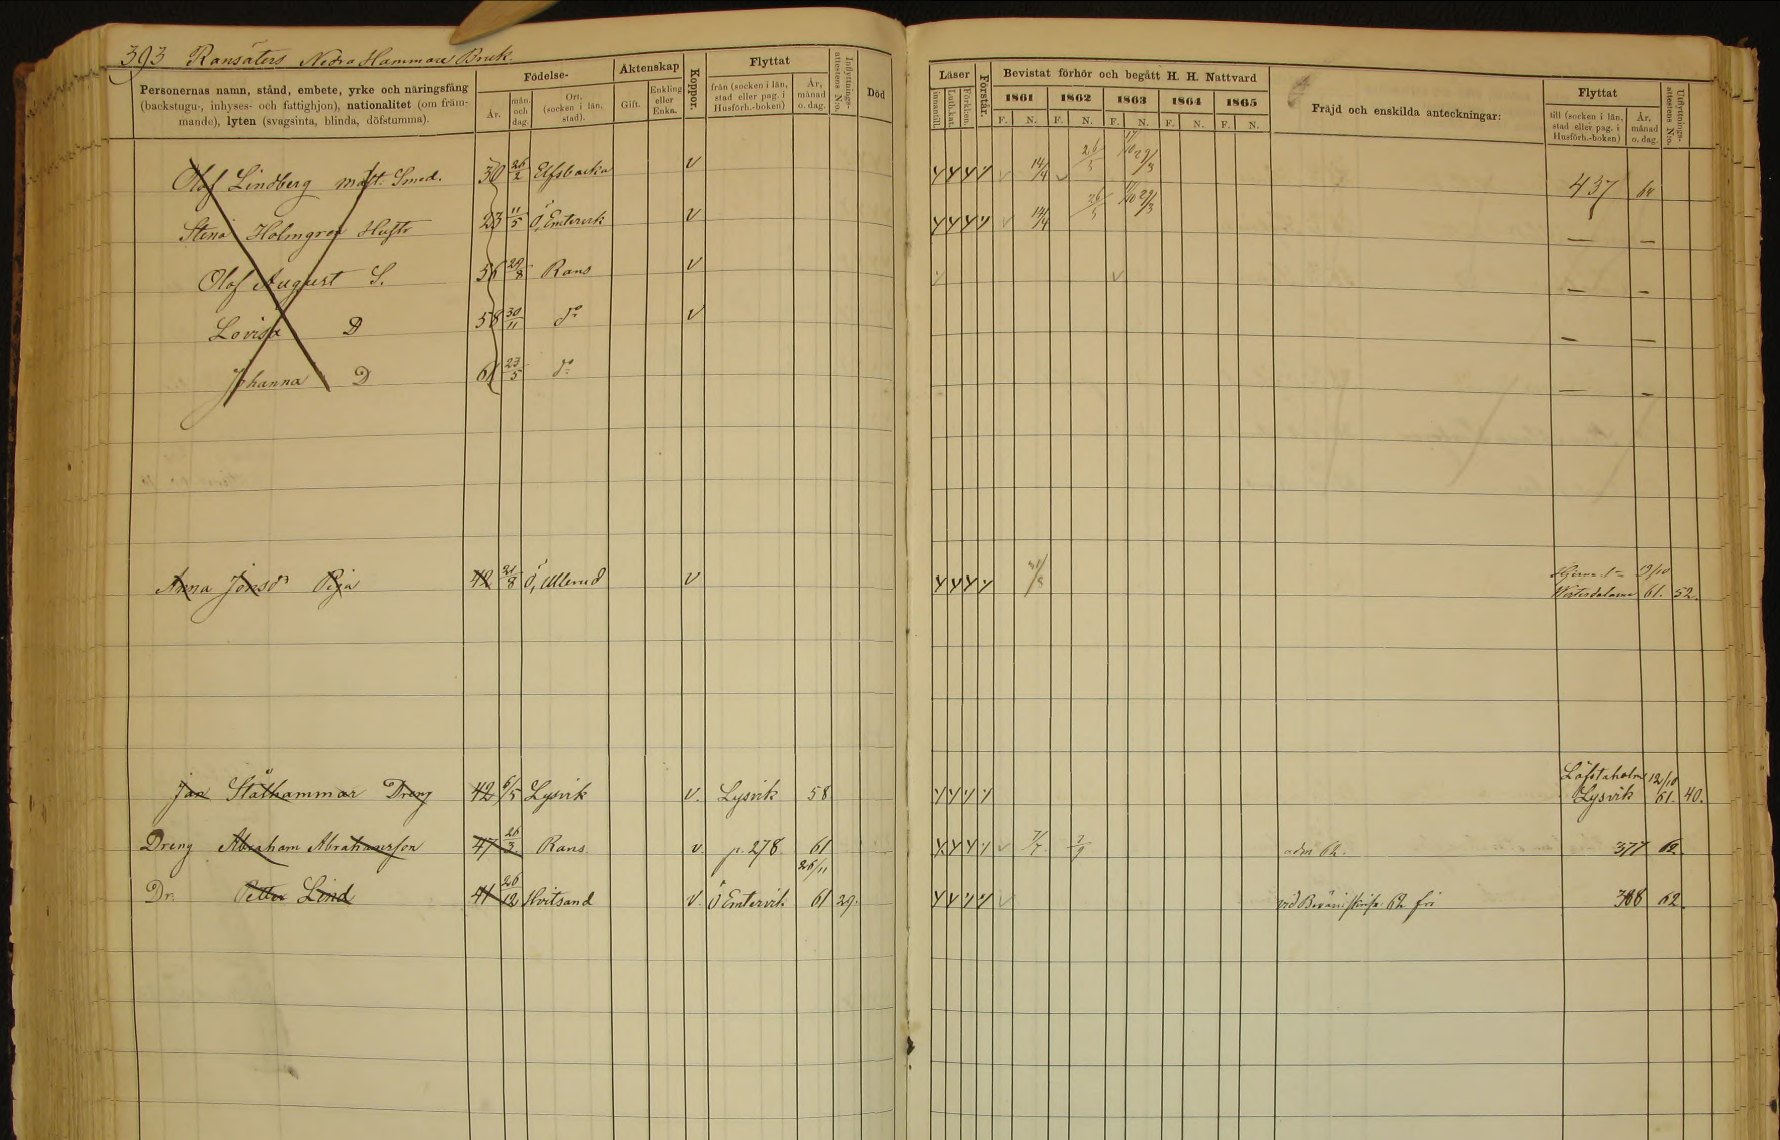 393 Ransäters Nedra Hammare Bruk
Personernas namn, stånd, embete, yrke och näringsfång
(backstugu-, inhyses- och fattighjon), nationalitet (om främ-
mande), lyten (svagsinta, blinda, döfstumma).
Födelse-
År.
mån. och dag.
Ort. (socken i län, stad).
Äktenskap
Gift.
Enkling eller Enka.
Koppor.
Flyttat
från (socken i län, stad eller pag. i Husförh.-boken)
År, månad o. dag.
Inflyttnings-attestens N:o.
Död
Läser
innantill.
Luth. kat.
Förklen.
Förstår.
Bevistat förhör och begått H. H. Nattvard
1861 1862 1863 1864 1865
F. N. F. N. F. N. F. N. F. N.
Fräjd och enskilda anteckningar:
Flyttat
till (socken i län, stad eller pag. i Husförh.-boken)
År, månad o. dag.
Utflyttnings-attestens N:o.
Olof Lindberg mäst. Smed. 30 26/2 Elfsbacka v 14/4 26/5 29/3 437
Stina Holmgren Hustr 23 11/5 Ö, Emtervik v 14/4 26/5 29/3 — —
Olof August S. 56 29/8 Rans v — —
Lovisa D 58 30/11 do v — —
Johanna D 61 23/5 do — —
Anna Jonsdr Piga 42 21/8 Ö, Ullerud v
Westerdalarne 61. 52.
Jan Stålhammar Dreng 42 6/5 Lysvik v. Lysvik 58 Löfstaholm 12/10
Lysvik 61. 40.
Dreng Abraham Abrahamsson 47 26/3 Rans v. p. 278 61 377 62.
26/11
Dr. Petter Lind 41 26/12 Hvitsand v. Ö Emtervik 61 29. 62 fri 388 62.